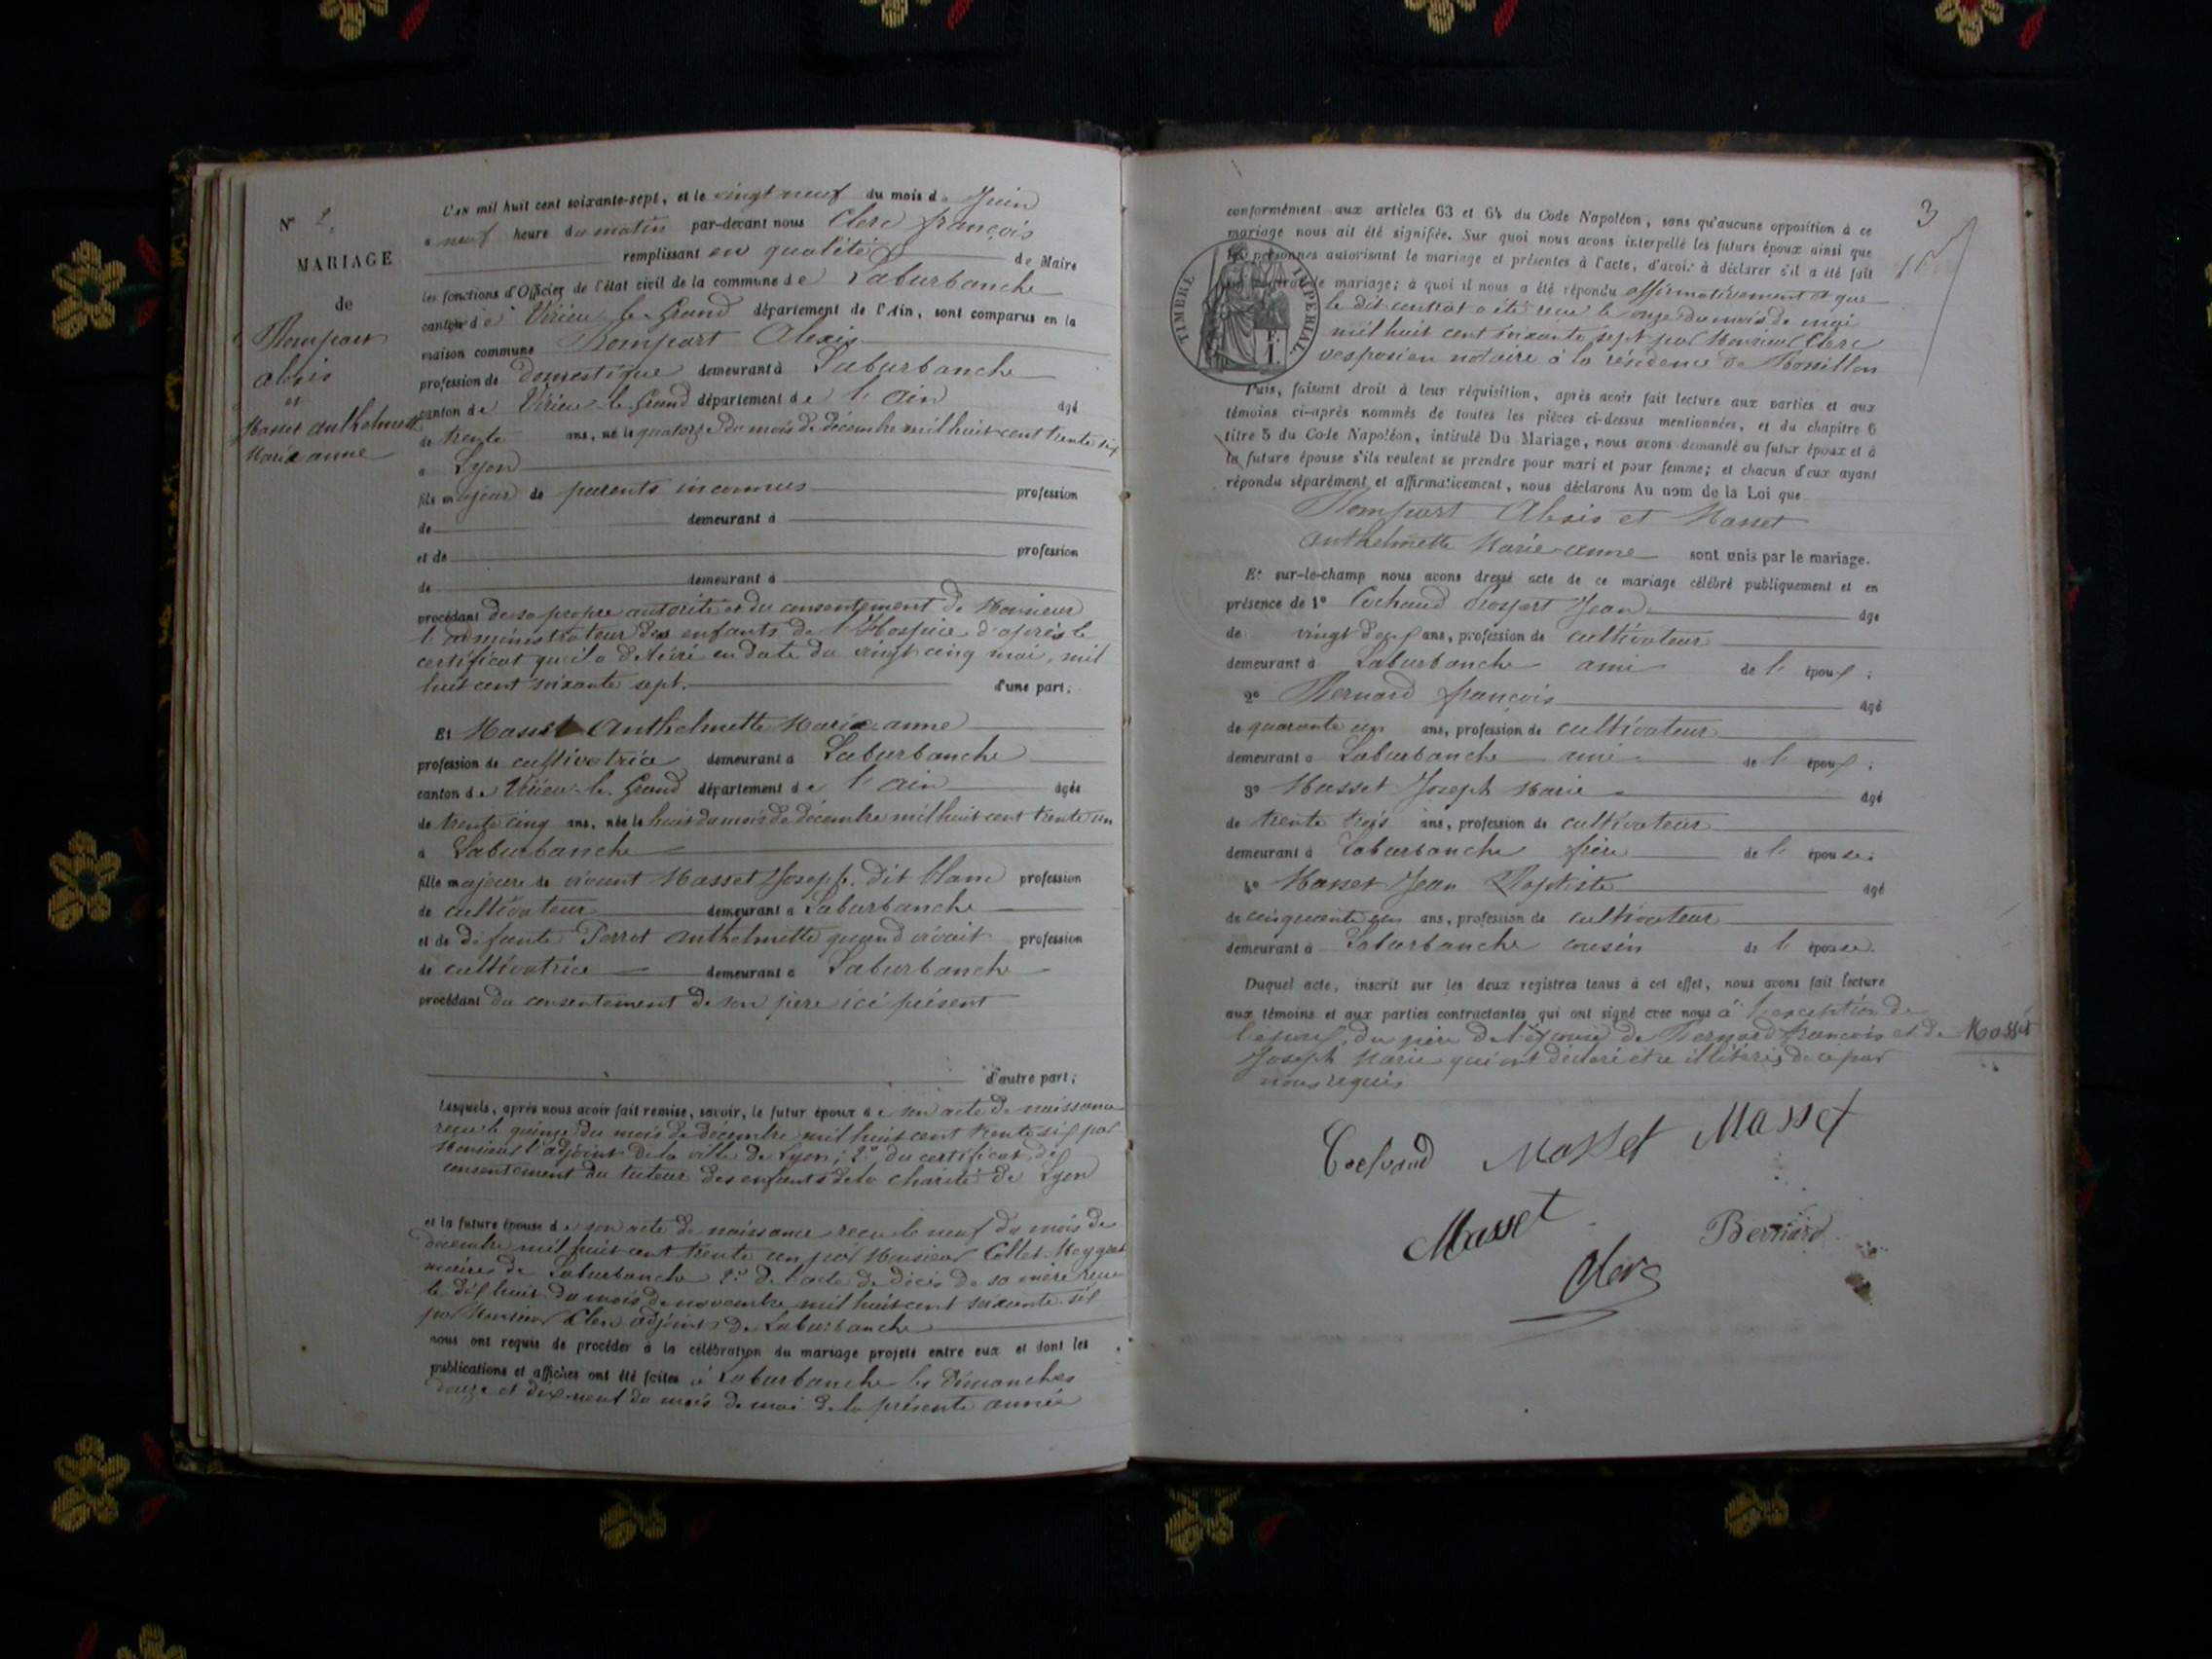 N° 2.
MARIAGE
de
Rompart
alexis
et
Masset anthelmette
Marie anne
L'AN mil huit cent soixante-sept, et le vingt neuf du mois de Juin
à neuf heure du matin par-devant nous Clerc françois
remplissant en qualité de Maire
les fonctions d'Officier de l'état civil de la commune de Laburbanche
canton de Virieu le Grand département de l'Ain, sont comparus en la
maison commune Rompart Alexis
profession de domestique demeurant à Laburbanche
canton de Virieu le Grand département de l'ain âgé
de trente ans, né le quatorze du mois de décembre mil huit cent trente six
à Lyon
fils majeur de parents inconnus profession
de demeurant à
et de profession
de demeurant à
procédant de sa propre autorité et du consentement de Monsieur
l'administrateur des enfants de l'Hospice d'après le
certificat qu'il a délivré en date du vingt cinq mai, mil
huit cent soixante sept. d'une part;
Et Masset Anthelmette Marie anne
profession de cultivatrice demeurant à Laburbanche
canton de Virieu le Grand département de l'ain âgée
de trente cinq ans, née le huit du mois de décembre mil huit cent trente un
à Laburbanche
fille majeure de vivant Masset Joseph dit blanc profession
de cultivateur demeurant à Laburbanche
et de défunte Perret Anthelmette quand vivait profession
de cultivatrice demeurant à Laburbanche
procédant du consentement de son père ici présent
d'autre part;
Lesquels, après nous avoir fait remise, savoir, le futur époux de son acte de naissance
reçu le quinze du mois de décembre mil huit cent trente six par
Monsieur l'adjoint de la ville de Lyon; 2° du certificat de
consentement du tuteur des enfants de la charité de Lyon
et la future épouse de son acte de naissance reçu le neuf du mois de
décembre mil huit cent trente un par Monsieur Collet
maire de Laburbanche 2° de l'acte de décès de sa mère reçu
le dix huit du mois de novembre mil huit cent soixante six
par Monsieur Clerc adjoint de Laburbanche
nous ont requis de procéder à la célébration du mariage projeté entre eux et dont les
publications et affiches ont été faites à Laburbanche les dimanches
douze et dix neuf du mois de mai de la présente année
3
conformément aux articles 63 et 64 du Code Napoléon, sans qu'aucune opposition à ce
mariage nous ait été signifiée. Sur quoi nous avons interpellé les futurs époux ainsi que
les personnes autorisant le mariage et présentes à l'acte, d'avoir à déclarer s'il a été fait
un contrat de mariage; à quoi il nous a été répondu affirmativement et que
le dit contrat a été reçu le onze du mois de mai
mil huit cent soixante sept par Monsieur Clerc
vespasien notaire à la résidence de Rossillon
TIMBRE IMPERIAL.
Puis, faisant droit à leur réquisition, après avoir fait lecture aux parties et aux
témoins ci-après nommés de toutes les pièces ci-dessus mentionnées, et du chapitre 6
titre 5 du Code Napoléon, intitulé Du Mariage, nous avons demandé au futur époux et à
la future épouse s'ils veulent se prendre pour mari et pour femme; et chacun d'eux ayant
répondu séparément et affirmativement, nous déclarons Au nom de la Loi que
Rompart Alexis et Masset
Anthelmette Marie anne sont unis par le mariage.
Et sur-le-champ nous avons dressé acte de ce mariage célébré publiquement et en
présence de 1° Cochand Prospert Jean âgé
de vingt neuf ans, profession de cultivateur
demeurant à Laburbanche ami de l'époux;
2° Bernard françois âgé
de quarante un ans, profession de cultivateur
demeurant à Laburbanche ami de l'époux;
3° Masset Joseph Marie âgé
de trente trois ans, profession de cultivateur
demeurant à Laburbanche frère de l'épouse;
4° Masset Jean Baptiste âgé
de cinquante un ans, profession de cultivateur
demeurant à Laburbanche cousin de l'épouse.
Duquel acte, inscrit sur les deux registres tenus à cet effet, nous avons fait lecture
aux témoins et aux parties contractantes qui ont signé avec nous à l'exception de
l'époux, du père de l'épouse de Bernard francois et de Masset
Joseph Marie qui ont déclaré être illétérés de ce par
nous requis
Cochand Masset Masset
Masset Bernard
Clerc